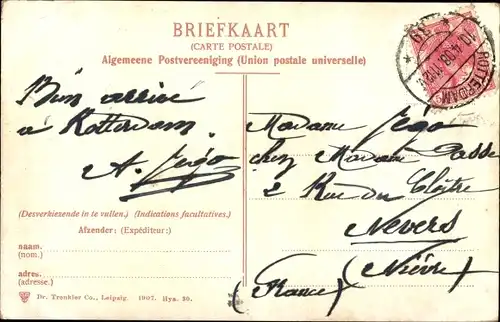 BRIEFKAART
(CARTE POSTALE)
Algemeene Postvereeniging (Union postale universelle)
ROTTERDAM
Bien arrivé
à Rotterdam
A. Jégo
Madame Jégo
chez Madame
2 Rue du Cloître
Nevers
(Nièvre)
(France)
(Desverkiezende in te vullen.) (Indications facultatives.)
Afzender: (Expéditeur:)
naam.
(nom.)
adres.
(adresse.)
Dr. Trenkler Co., Leipzig. 1907. Hya. 30.